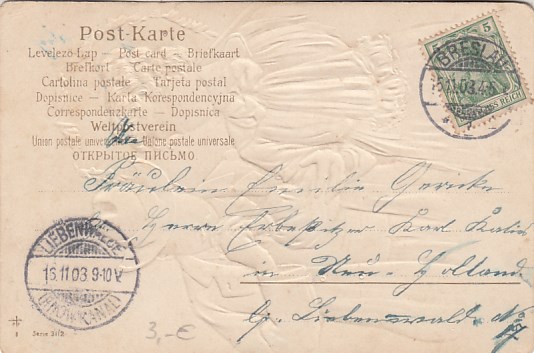 Post-Karte
Levelező-Lap — Post card — Briefkaart
Brefkort — Carte postale
Cartolina postale — Tarjeta postal
Dopisnice — Karta Korespondencyjna
Correspondenzkarte — Dopisnica
Weltpostverein
Union postale universelle — Unione postale universale
ОТКРЫТОЕ ПИСЬМО
5
BRESLAU
11.03.4-5
REICH
An
Fräulein Emilie Gericke
Herrn Erbsitzer Karl
in Neu-Holland
bei Liebenwalde No 17
LIEBENWALDE
16.11.03 9-10 V.
3,-€
Serie